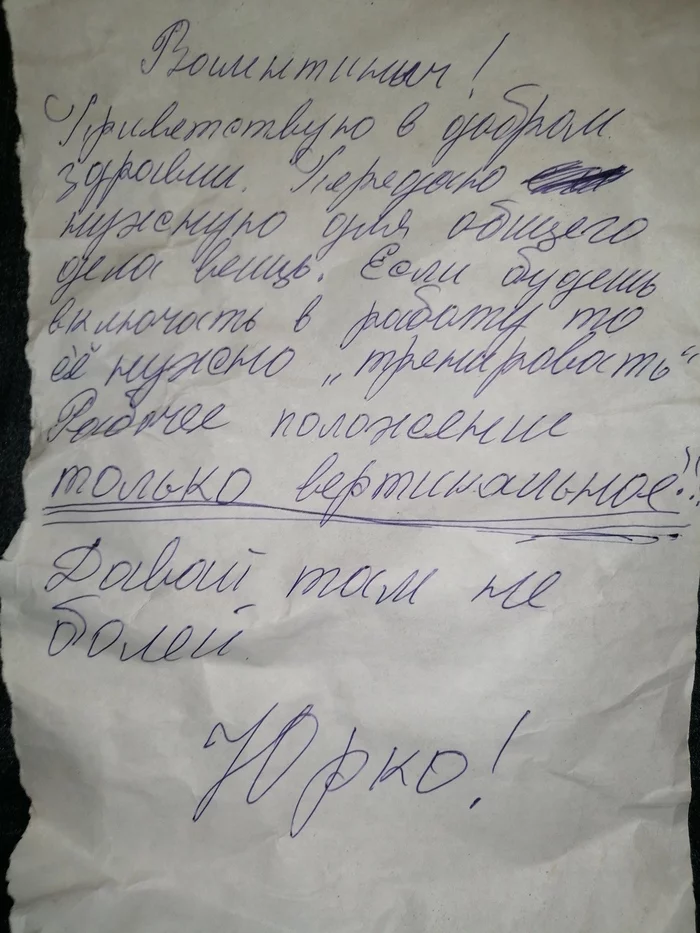 Валентиныч!
Приветствую в добром
здравии. Передаю
нужную для общего
дела вещь. Если будешь
включать в работу то
её нужно „тренировать“
Рабочее положение
только вертикальное!!
Давай там не
болей
Юрко!